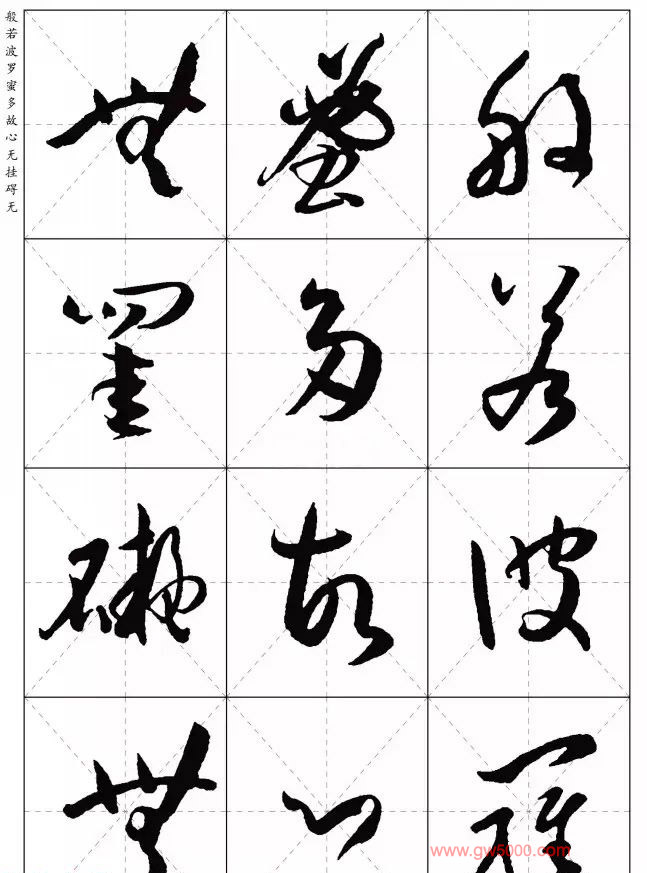 般若波羅
蜜多故心
無罣礙無
般若波罗蜜多故心无挂碍无
www.gw5000.com